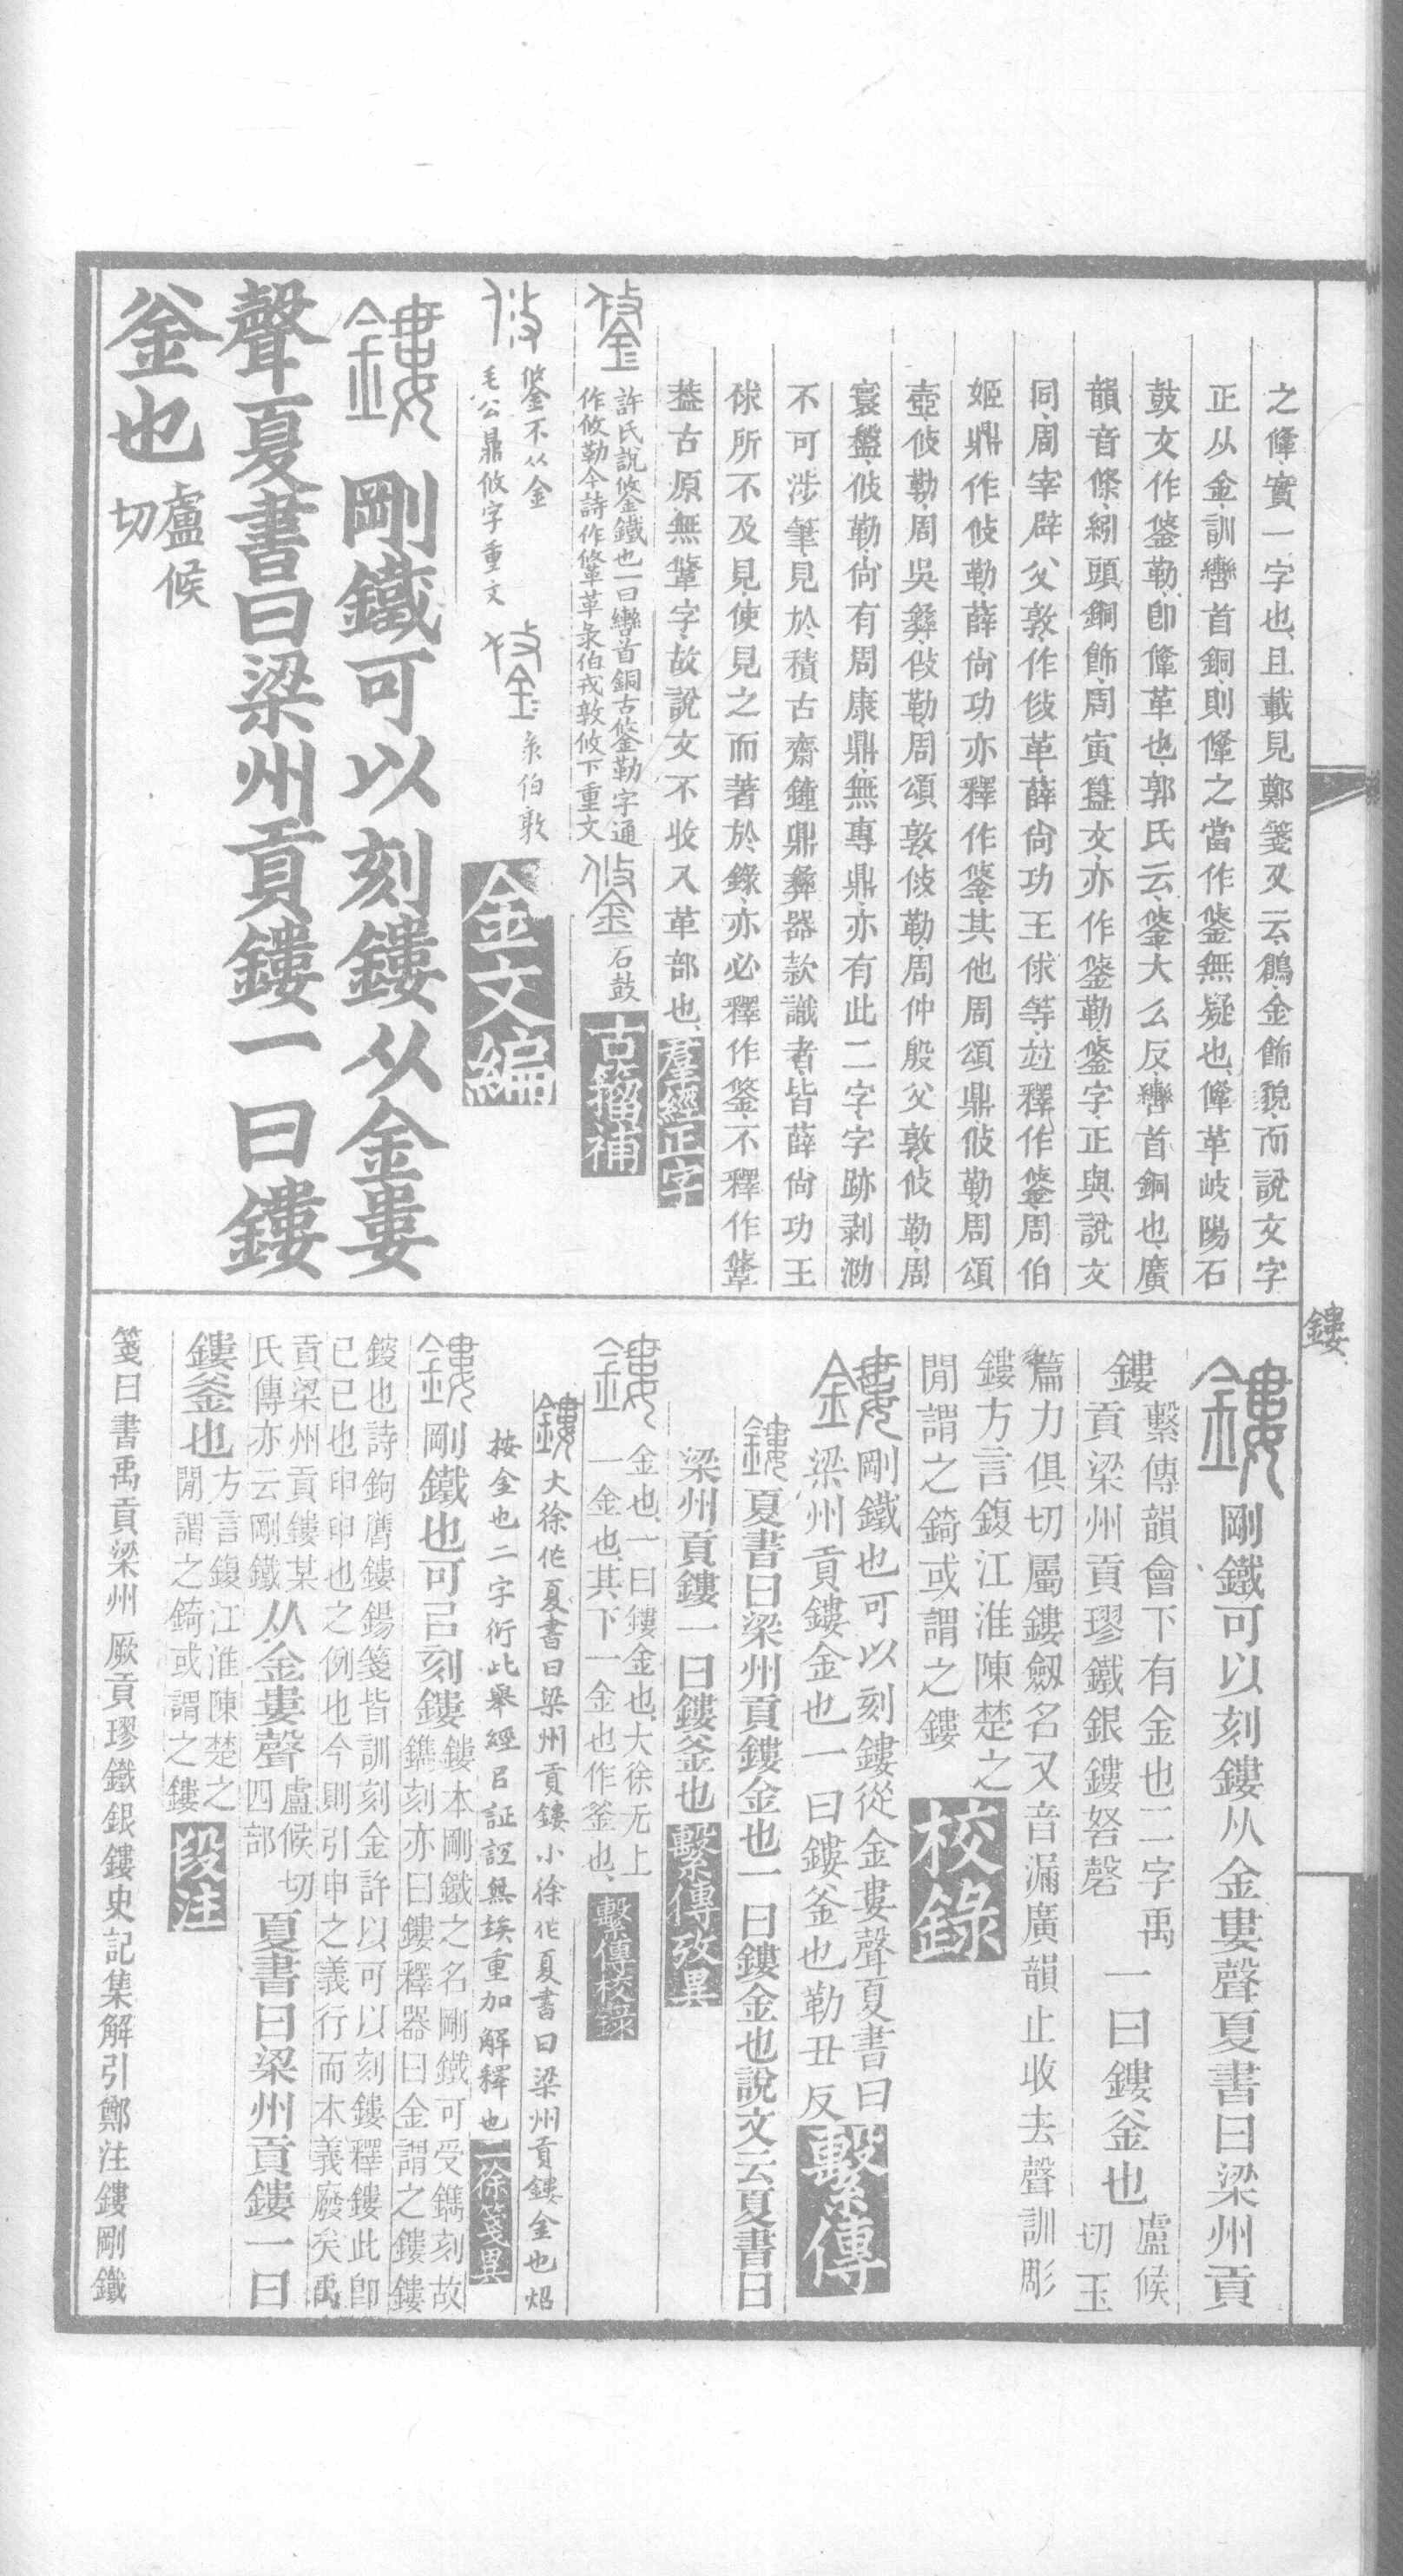 之鞗實一字也且載見鄭箋又云鶬金飾貌而說文字
正从金訓轡首銅則鞗之當作鋚無疑也鞗革岐陽石
鼓文作鋚勒卽鞗革也郭氏云鋚大么反轡首銅也廣
韻音條紖頭銅飾周寅簋文亦作鋚勒鋚字正與說文
同周宰辟父敦作攸革薛尙功王俅等竝釋作鋚周伯
姬鼎作攸勒薛尙功亦釋作鋚其他周頌鼎攸勒周頌
壺攸勒周吳彝攸勒周頌敦攸勒周仲殷父敦攸勒周
寰盤攸勒尙有周康鼎無專鼎亦有此二字字跡剥泐
不可涉筆見於積古齋鐘鼎彝器款識者皆薛尙功王
俅所不及見使見之而著於錄亦必釋作鋚不釋作鞗
葢古原無鞗字故說文不收入革部也羣經正字
許氏說鋚鐵也一曰轡首銅古鋚勒字通
作攸勒今詩作鞗革彔伯戎敦攸下重文
石鼓
古籀補
鋚不从金
毛公鼎攸字重文
彔伯敦
金文編
鏤 剛鐵可以刻鏤从金婁
聲夏書曰梁州貢鏤一曰鏤
釜也盧候
切
鏤
鏤 剛鐵可以刻鏤从金婁聲夏書曰梁州貢
鏤繫傳韻會下有金也二字禹
貢梁州貢璆鐵銀鏤砮磬
一曰鏤釜也盧候
切玉
篇力俱切屬鏤劔名又音漏廣韻止收去聲訓彫
鏤方言鍑江淮陳楚之
閒謂之錡或謂之鏤
校錄
鏤剛鐵也可以刻鏤從金婁聲夏書曰
梁州貢鏤金也一曰鏤釜也勒丑反
繫傳
鏤夏書曰梁州貢鏤金也一曰鏤金也說文云夏書曰
梁州貢鏤一曰鏤釜也繫傳攷異
鏤金也一曰鏤金也大徐无上
一金也其下一金也作釜也
繫傳校錄
鏤大徐作夏書曰梁州貢鏤小徐作夏書曰梁州貢鏤金也炤
按金也二字衍此舉經㠯証誼無緣重加解釋也二徐箋異
鏤剛鐵也可㠯刻鏤鏤本剛鐵之名剛鐵可受鐫刻故
鐫刻亦曰鏤釋器曰金謂之鏤鏤
鍐也詩鉤膺鏤鍚箋皆訓刻金許以可以刻鏤釋鏤此卽
已已也申申也之例也今則引申之義行而本義廢矣禹
貢梁州貢鏤某
氏傳亦云剛鐵
从金婁聲盧候切
四部
夏書曰梁州貢鏤一曰
鏤釜也方言鍑江淮陳楚之
閒謂之錡或謂之鏤
段注
箋曰書禹貢梁州厥貢璆鐵銀鏤史記集解引鄭注鏤剛鐵